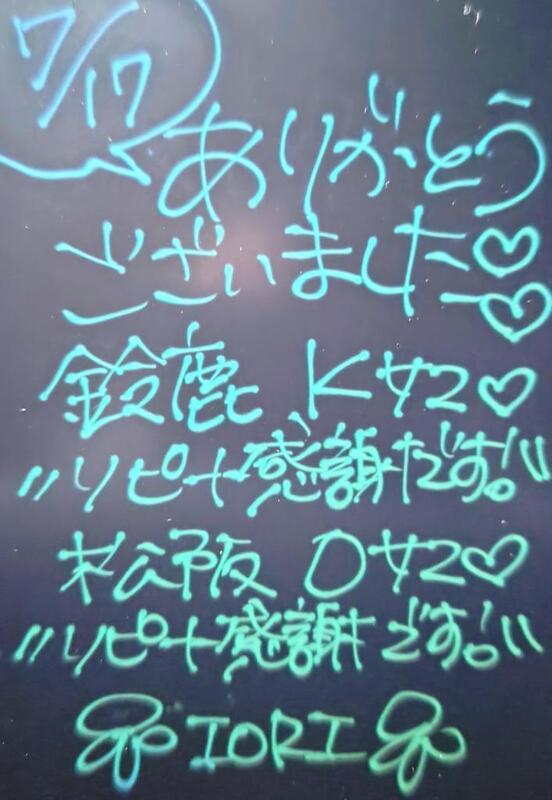 7/17
ありがとう
ございました♡♡
鈴鹿 Kサマ♡
"リピート感謝です!"
松阪 Oサマ♡
"リピート感謝です!"
IORI